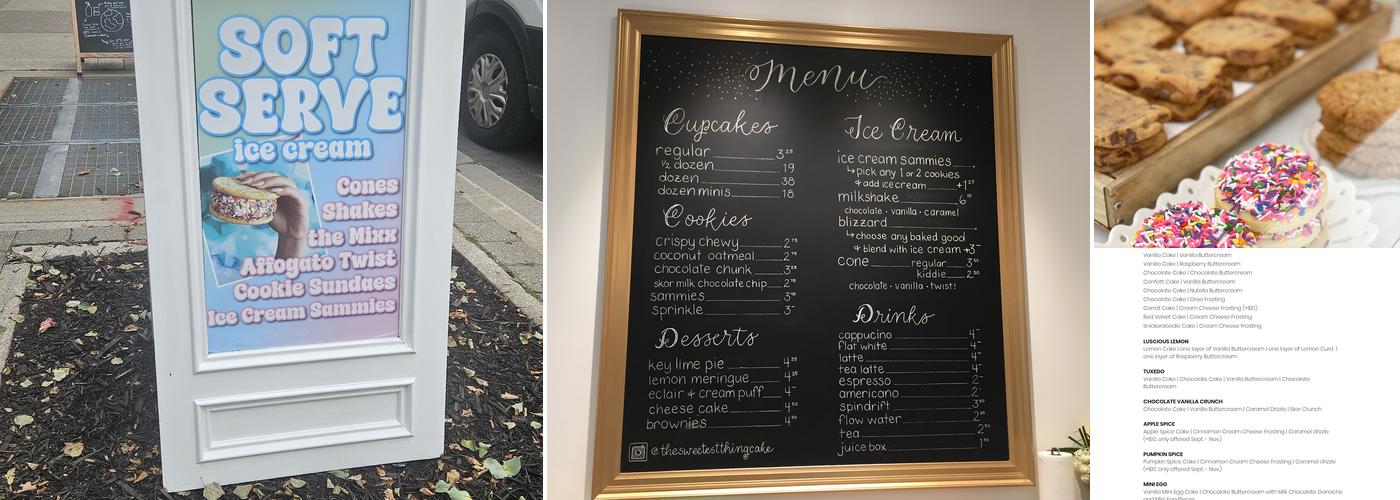 SOFT
SERVE
ice cream
Cones
Shakes
the Mixx
Affogato Twist
Cookie Sundaes
Ice Cream Sammies
Menu
Cupcakes
regular 3.25
1/2 dozen 19
dozen 38
dozen minis 18
Cookies
crispy chewy 2.75
coconut oatmeal 2.75
chocolate chunk
skor milk chocolate chip
sammies
sprinkle 3-
Desserts
key lime pie
lemon meringue
eclair & cream puff 4-
cheese cake 4.50
brownies 4.50
@thesweetestthingcake
Ice Cream
ice cream sammies
↳ pick any 1 or 2 cookies
& add ice cream +1.25
milkshake
chocolate · vanilla · caramel
blizzard
↳ choose any baked good
& blend with ice cream +3-
cone regular 3.50
kiddie 2.50
chocolate · vanilla · twist!
Drinks
cappucino 4-
flat white 4-
latte 4-
tea latte 4-
espresso 2-
americano 2-
spindrift 3.50
flow water
tea 2.50
juice box
Vanilla Cake | Vanilla Buttercream
Vanilla Cake | Raspberry Buttercream
Chocolate Cake | Chocolate Buttercream
Confetti Cake | Vanilla Buttercream
Chocolate Cake | Nutella Buttercream
Chocolate Cake | Oreo Frosting
Carrot Cake | Cream Cheese Frosting (+$10)
Red Velvet Cake | Cream Cheese Frosting
Snickerdoodle Cake | Cream Cheese Frosting
LUSCIOUS LEMON
Lemon Cake | one layer of Vanilla Buttercream | one layer of Lemon Curd |
one layer of Raspberry Buttercream
TUXEDO
Vanilla Cake | Chocolate Cake | Vanilla Buttercream | Chocolate
Buttercream
CHOCOLATE VANILLA CRUNCH
Chocolate Cake | Vanilla Buttercream | Caramel Drizzle | Skor Crunch
APPLE SPICE
Apple Spice Cake | Cinnamon Cream Cheese Frosting | Caramel drizzle
(+$10, only offered Sept. - Nov.)
PUMPKIN SPICE
Pumpkin Spice Cake | Cinnamon Cream Cheese Frosting | Caramel drizzle
(+$10, only offered Sept. - Nov.)
MINI EGG
Vanilla Mini Egg Cake | Chocolate Buttercream with Milk Chocolate Ganache
and Mini Egg Pieces